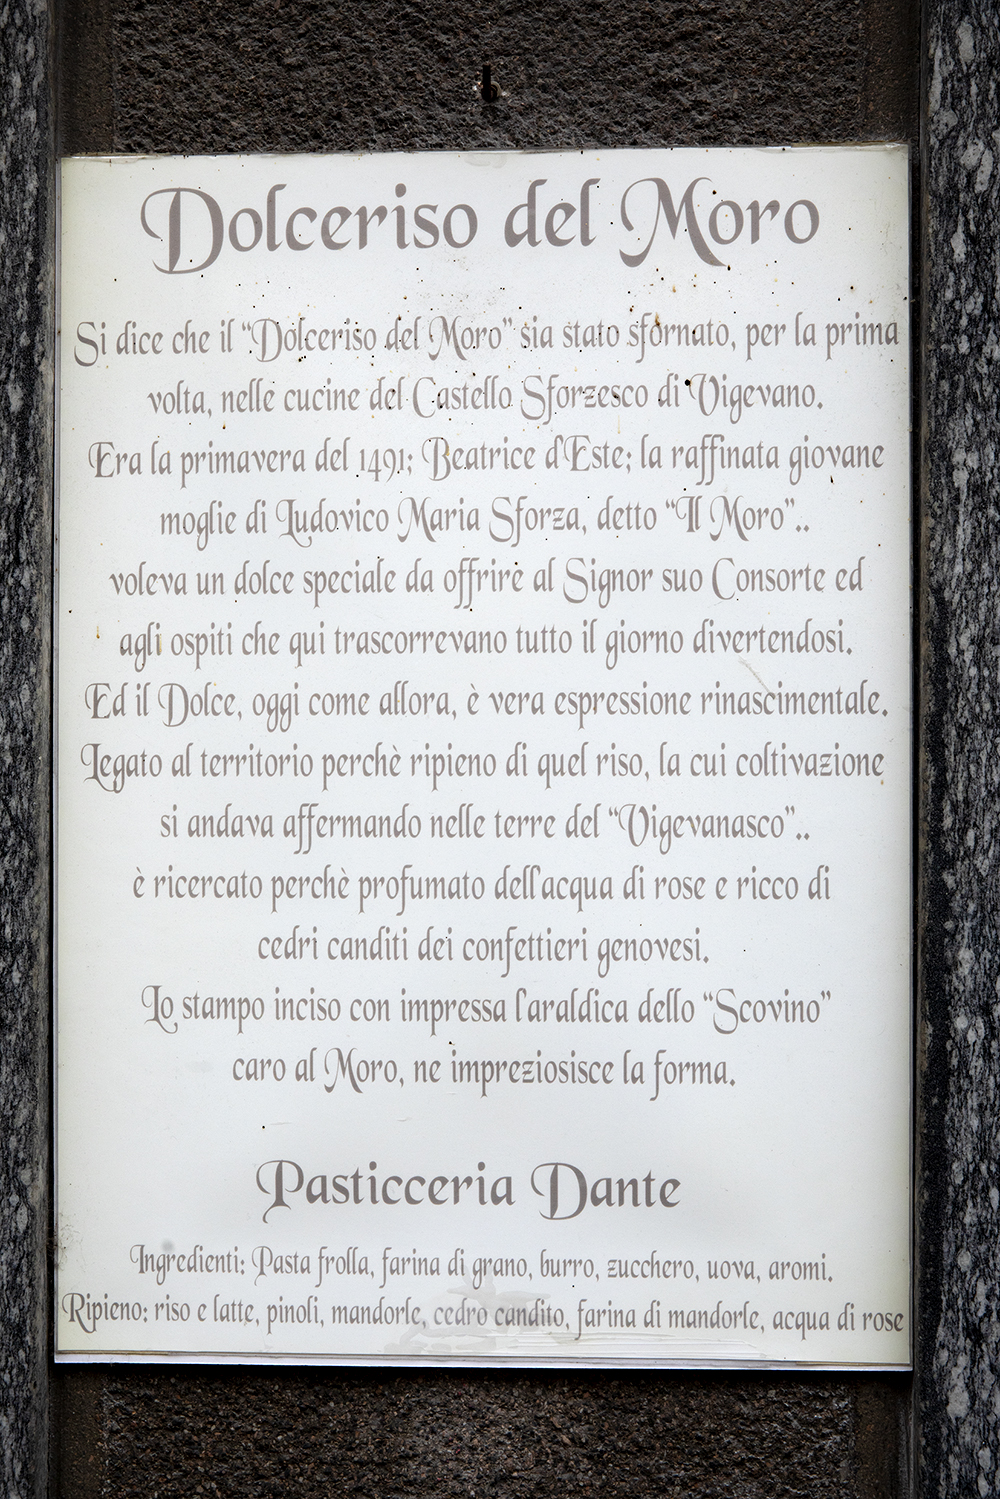 Dolceriso del Moro
Si dice che il “Dolceriso del Moro” sia stato sfornato, per la prima
volta, nelle cucine del Castello Sforzesco di Vigevano.
Era la primavera del 1491; Beatrice d'Este; la raffinata giovane
moglie di Ludovico Maria Sforza, detto “Il Moro”..
voleva un dolce speciale da offrire al Signor suo Consorte ed
agli ospiti che qui trascorrevano tutto il giorno divertendosi.
Ed il Dolce, oggi come allora, è vera espressione rinascimentale.
Legato al territorio perchè ripieno di quel riso, la cui coltivazione
si andava affermando nelle terre del “Vigevanasco”..
è ricercato perchè profumato dell'acqua di rose e ricco di
cedri canditi dei confettieri genovesi.
Lo stampo inciso con impressa l'araldica dello “Scovino”
caro al Moro, ne impreziosisce la forma.
Pasticceria Dante
Ingredienti: Pasta frolla, farina di grano, burro, zucchero, uova, aromi.
Ripieno: riso e latte, pinoli, mandorle, cedro candito, farina di mandorle, acqua di rose